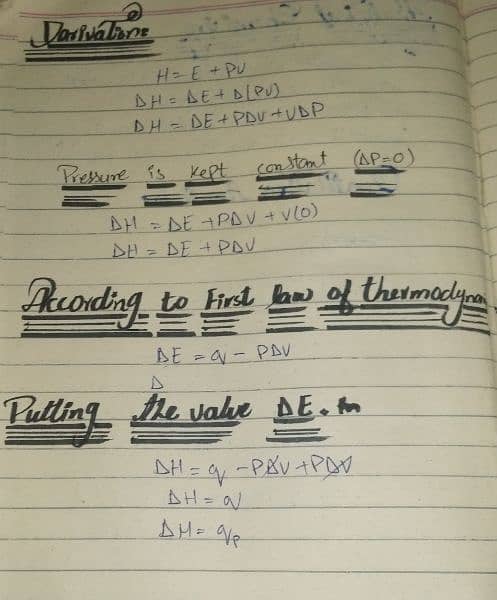 Derivation:
H = E + PV
ΔH = ΔE + Δ(PV)
ΔH = ΔE + PΔV + VΔP
Pressure is kept constant (ΔP=0)
ΔH = ΔE + PΔV + V(0)
ΔH = ΔE + PΔV
According to First law of thermodynam
ΔE = q - PΔV
Δ
Putting the value ΔE. in
ΔH = q - PΔV + PΔV
ΔH = q
ΔH = qp